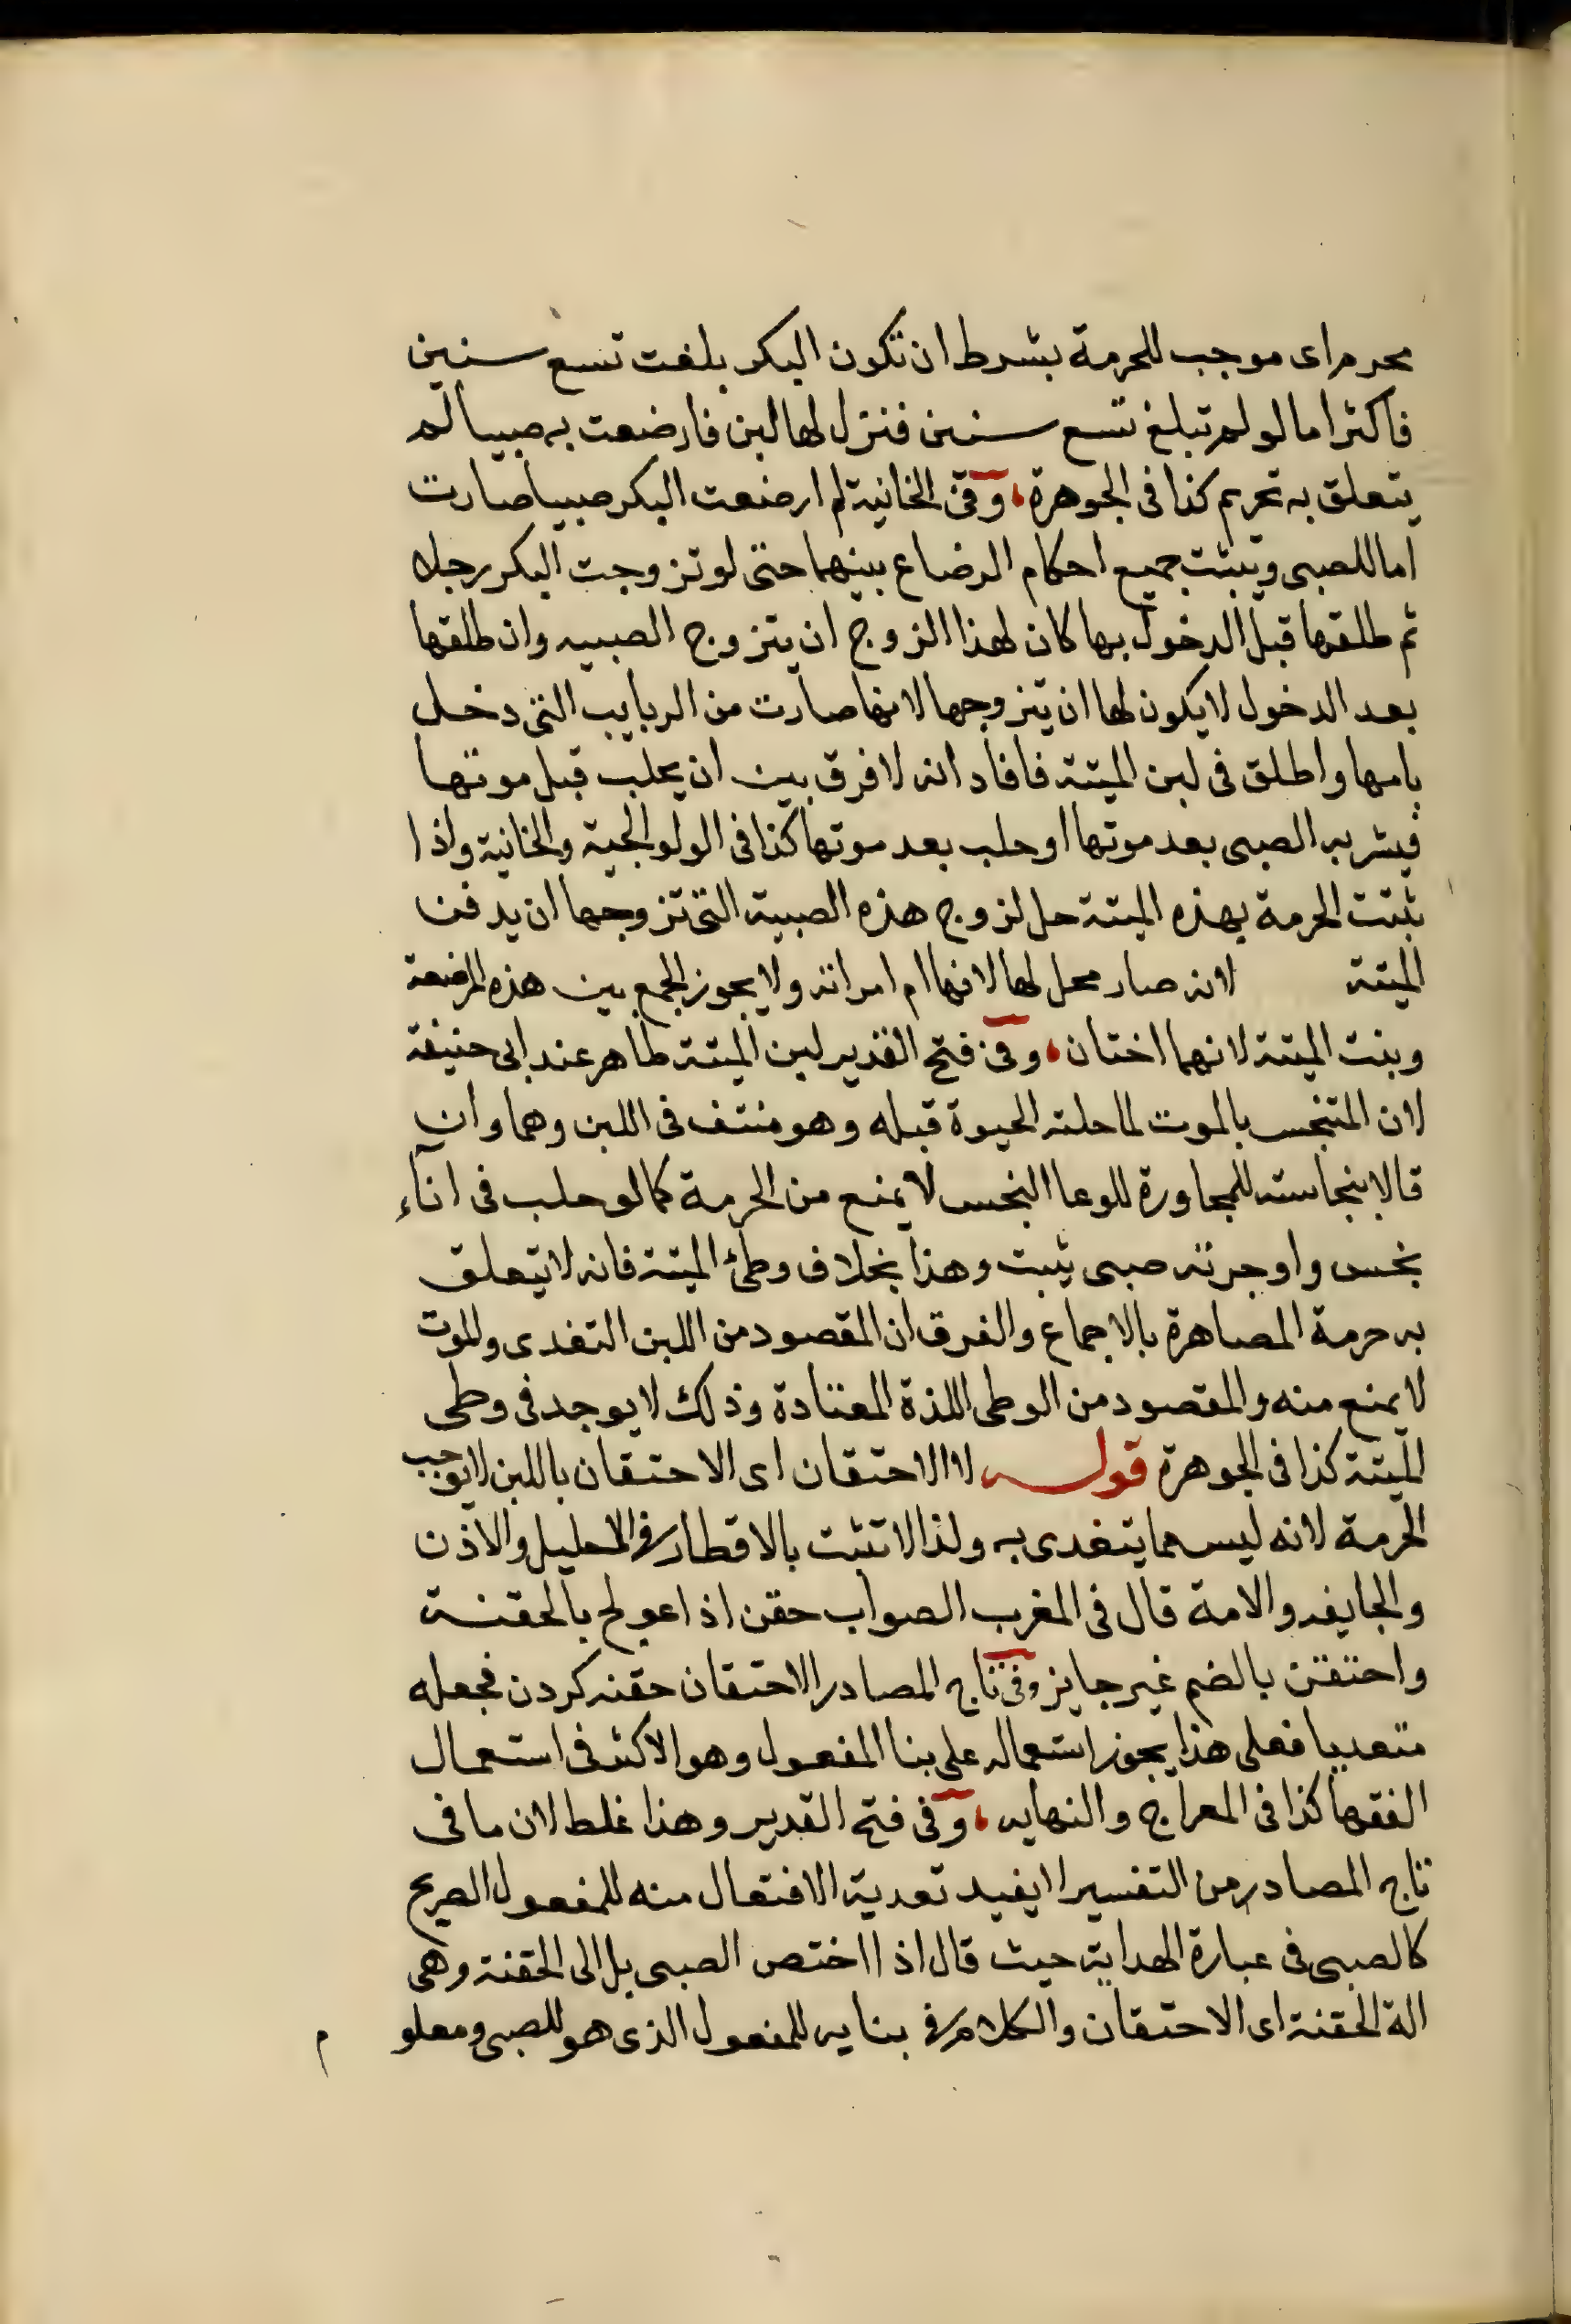 محرم اى موجب للحرمة بشرط ان تكون البكر بلغت تسع سنين
فاكثر اما لو لم تبلغ تسع سنين فنزل لها لبن فارضعت به صبيا لم
يتعلق به تحريم كذا فى الجوهرة، وفى الخانية لو ارضعت البكر صبيا صارت
اما للصبى ويثبت جميع احكام الرضاع بينهما حتى لو تزوجت البكر رجلا
ثم طلقها قبل الدخول بها كان لهذا الزوج ان يتزوج الصبيه وان طلقها
بعد الدخول لا يكون لها ان يتزوجها لانها صارت من الربايب التى دخل
بامها واطلق فى لبن الميتة فافاد انه لا فرق بين ان يحلب قبل موتها
فيشربه الصبى بعد موتها او حلب بعد موتها كذا فى الولوالجية والخانية واذا
ثبتت الحرمة بهذه الميتة حل لزوج هذه الصبية التى تزوجها ان يدفن
الميتة لانه صار محل لها لانها ام امراته ولا يجوز الجمع بين هذه المرضعة
وبنت الميتة لانهما اختان، وفى فتح القدير لبن الميتة طاهر عند ابى حنيفة
لان المتنجس بالموت لما حلته الحيوة قبله وهو منتف فى اللبن وهما وان
قالا بنجاسته للمجاورة للوعا النجس لا يمنع من الحرمة كما لو حلب فى اناء
نجس واوجرته صبى يثبت وهذا بخلاف وطئ الميتة فانه لا يتعلق
به حرمة المصاهرة بالاجماع والفرق ان المقصود من اللبن التغدى والموت
لا يمنع منه والمقصود من الوطى اللذة المعتادة وذلك لا يوجد فى وطى
الميتة كذا فى الجوهرة قوله لا الاحتقان اى الاحتقان باللبن لا يوجب
الحرمة لانه ليس مما يتغدى به ولذا لا تثبت بالاقطار فى الاحليل والاذن
والجايفه والامة قال فى المغرب الصواب حقن اذا عولج بالحقنة
واحتقن بالضم غير جايز وفى تاج المصادر الاحتقان حقنه كردن فجعله
متعديا فعلى هذا يجوز استعماله على بنا المفعول وهو الاكثر فى استعمال
الفقها كذا فى المعراج والنهايه، وفى فتح القدير وهذا غلط لان ما فى
تاج المصادر من التفسير لا يفيد تعدية الافتعال منه للمفعول الصريح
كالصبى فى عبارة الهداية حيث قال اذا اختص الصبى بل الى الحقنة وهى
الة الحقنة اى الاحتقان والكلام فى بنايه للمفعول الذى هو للصبى ومعلو
م